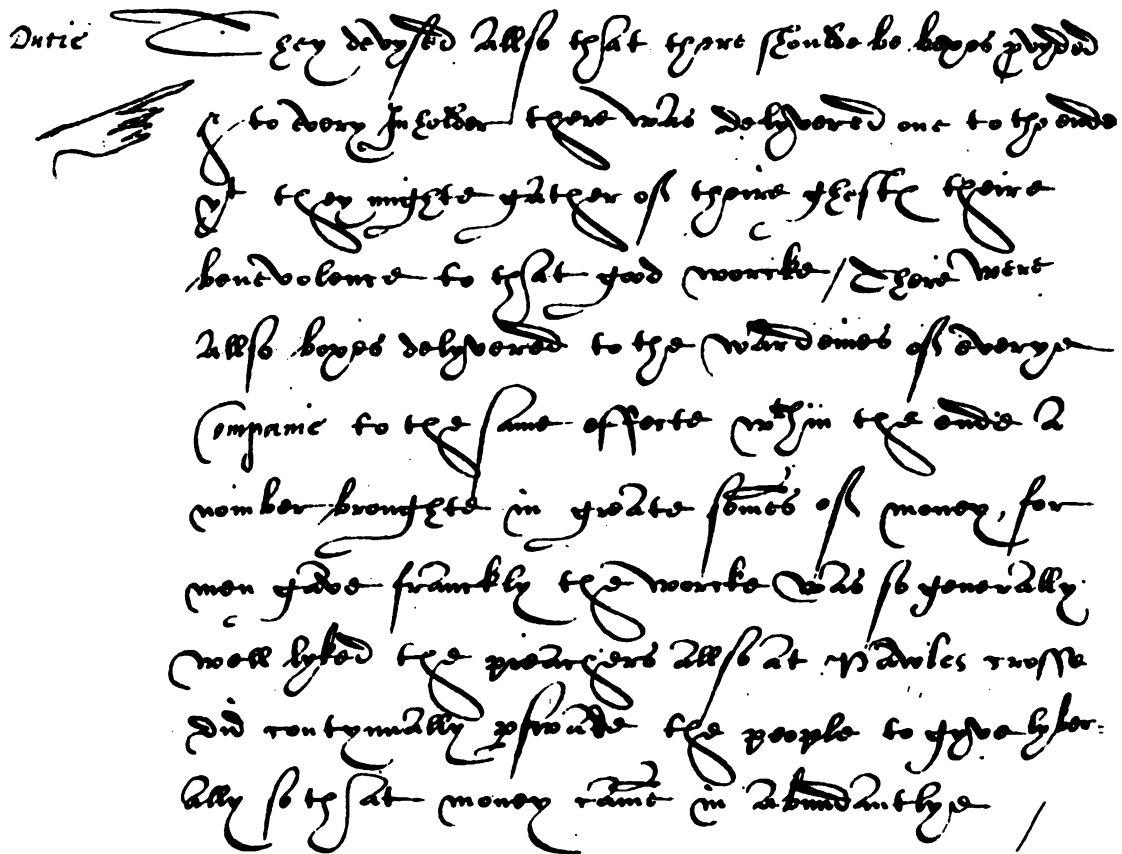 Dutie
They devysed allso that there shoulde be boxes pvyded
& to every Inholder there was delyvered one to the ende
yt they mighte gather of theire ghestes theire
benevolence to that good worcke / There were
allso boxes delyvered to the wardeines of everye
Companie to the same effecte wthin the ende a
nomber broughte in greate somes of money, for
men gave franckly the worcke was so generally
well lyked the preachers allso at Pawles crosse
did contynually pswade the people to gyve lyber=
ally so that money came in abundantlye /